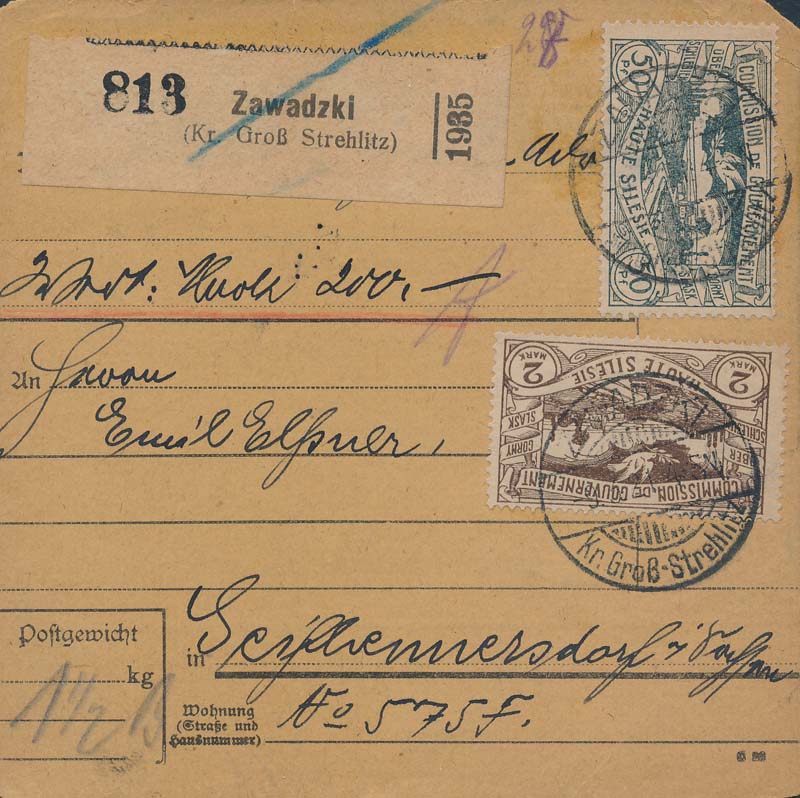 813 Zawadzki
(Kr. Groß Strehlitz)
1935
50 Pf
COMMISSION DE GOUVERNEMENT
HAUTE SILESIE
OBER SCHLESIEN
GORNY SLASK
50 Pf
Wert: Mark 200,—
2 MARK
HAUTE SILESIE
2 MARK
GORNY SLASK
OBER SCHLESIEN
COMMISSION DE GOUVERNEMENT
An Herrn
Emil Elßner,
Kr. Groß-Strehlitz
Postgewicht
kg
in Seifhennersdorf i/Sachsen
Wohnung
(Straße und
Hausnummer)
No 575F.